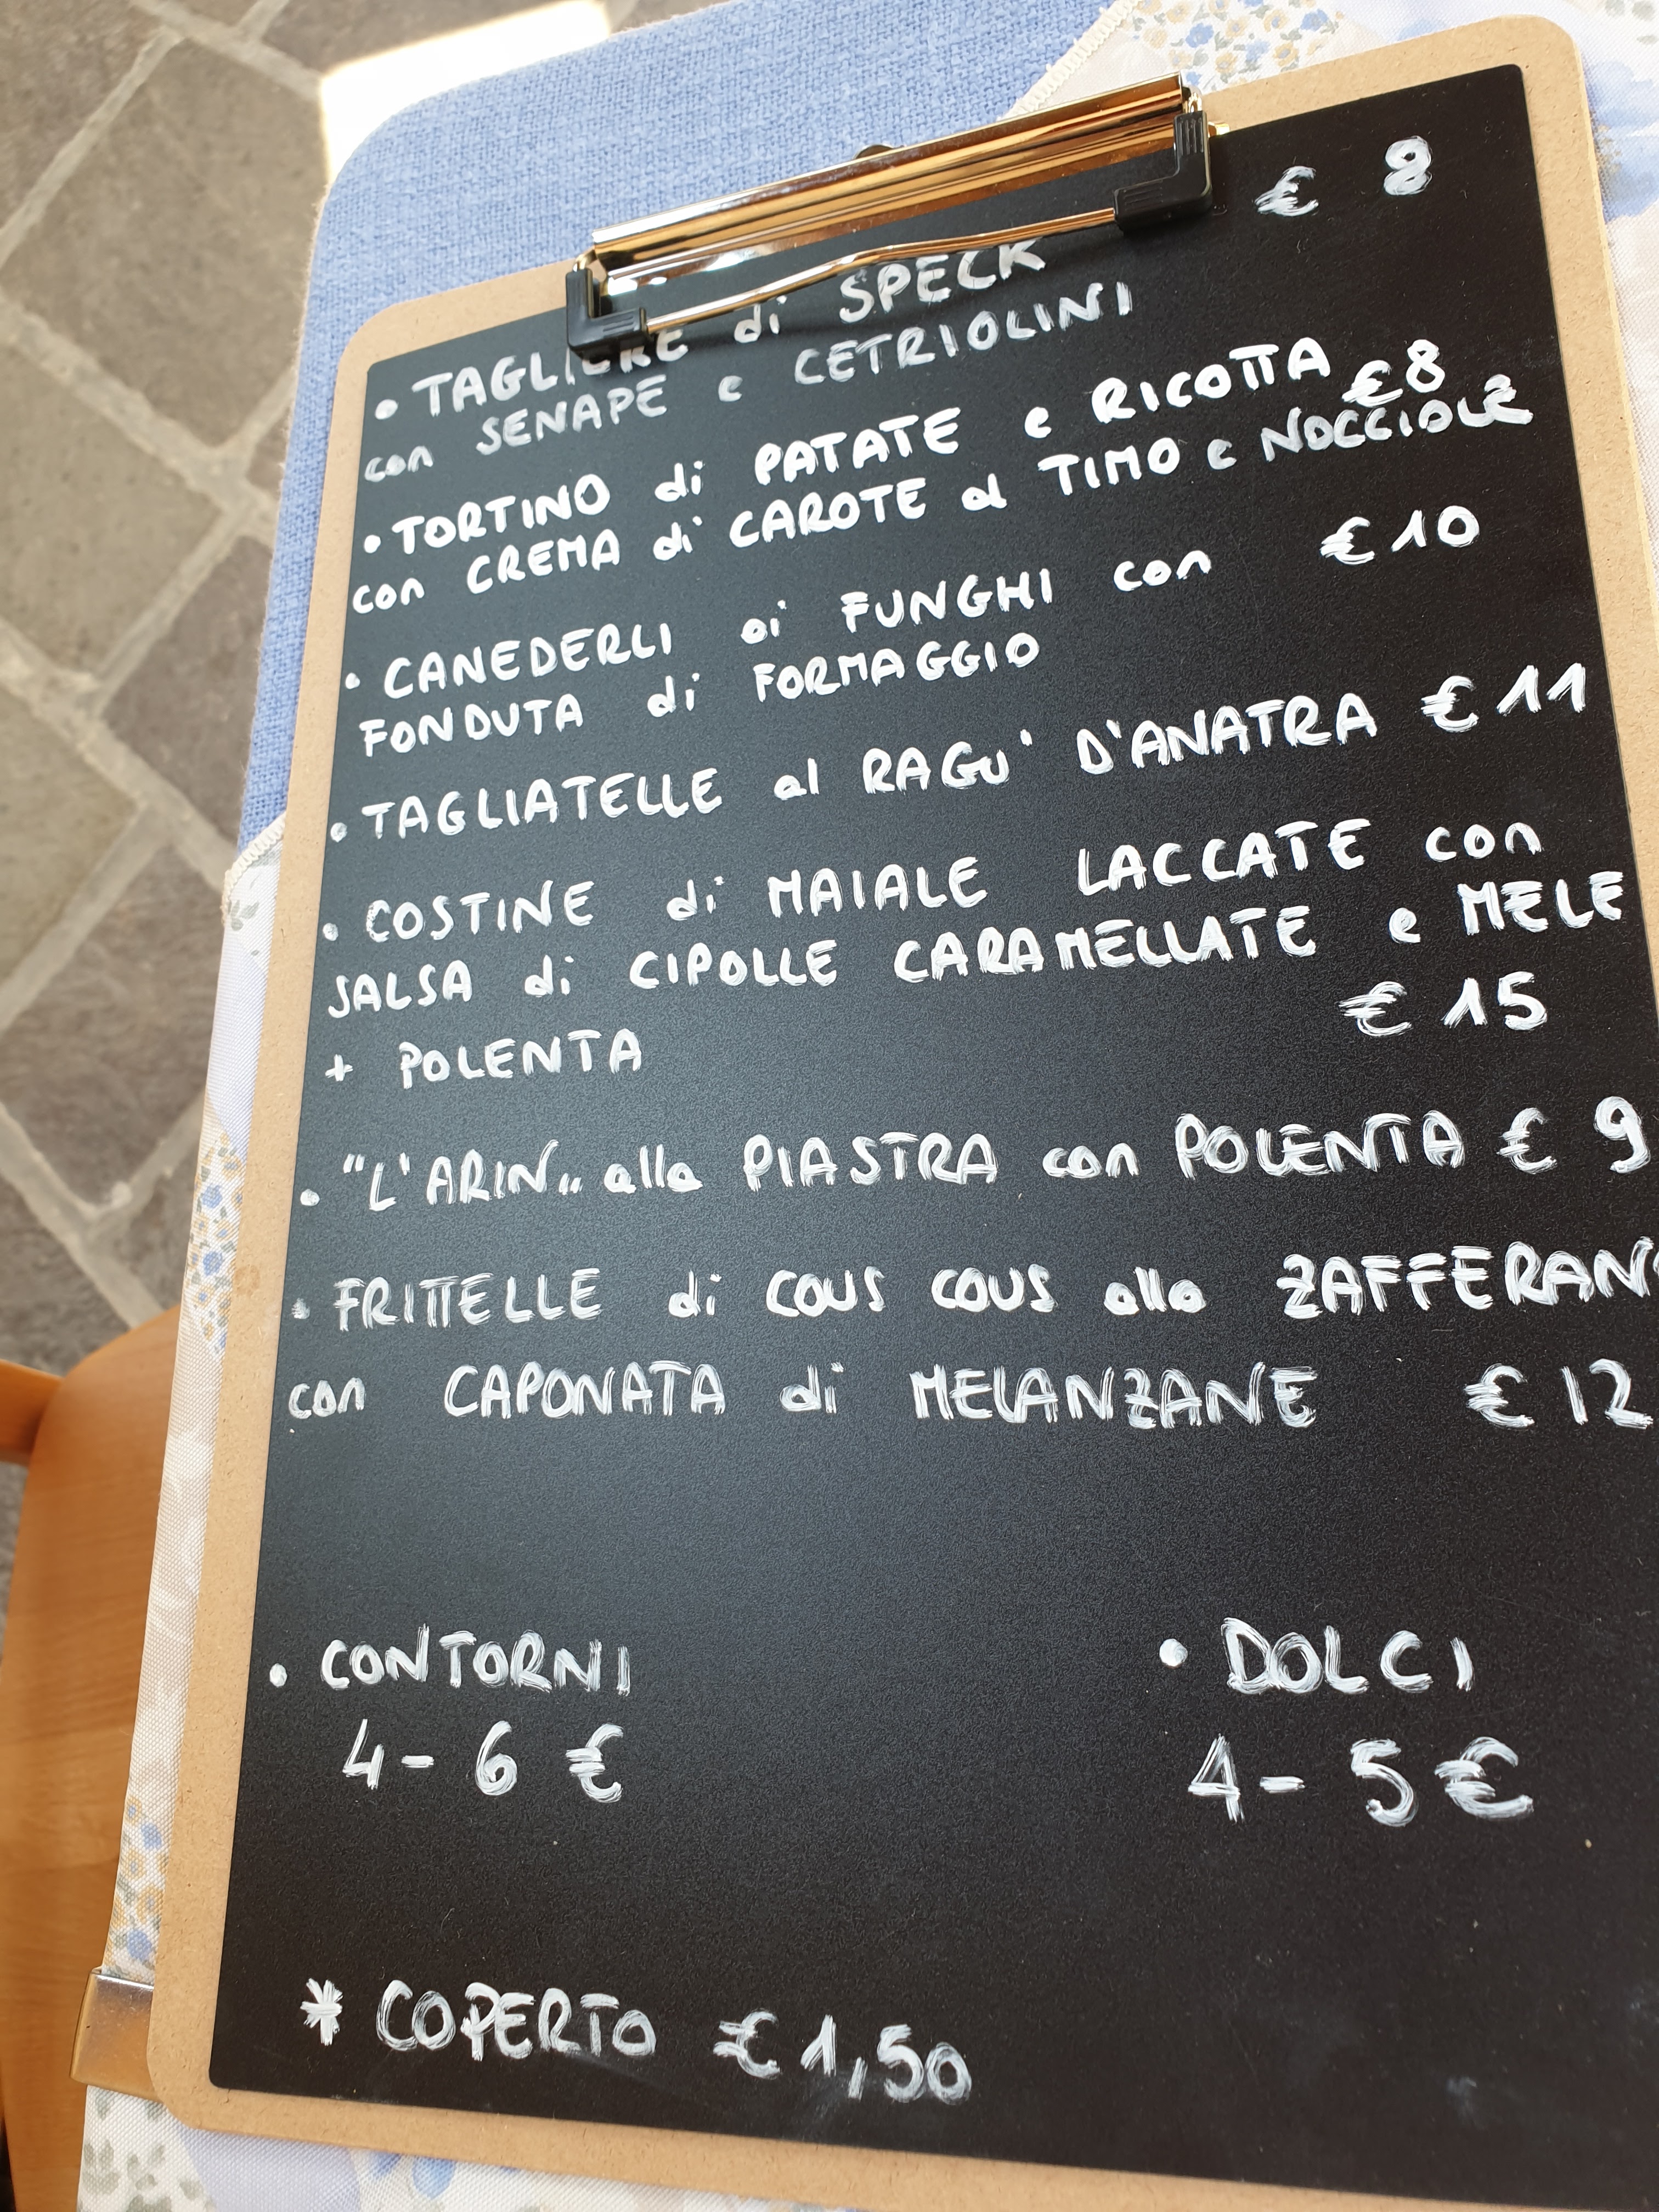 € 8
• TAGLIERE di SPECK
con SENAPE e CETRIOLINI
• TORTINO di PATATE e RICOTTA €8
con CREMA di CAROTE al TIMO e NOCCIOLE
• CANEDERLI di FUNGHI con €10
FONDUTA di FORMAGGIO
• TAGLIATELLE al RAGU' D'ANATRA €11
• COSTINE di MAIALE LACCATE con
SALSA di CIPOLLE CARAMELLATE e MELE
+ POLENTA €15
• "L'ARIN„ alla PIASTRA con POLENTA € 9
• FRITTELLE di COUS COUS allo ZAFFERANO
con CAPONATA di MELANZANE €12
• CONTORNI
4- 6 €
• DOLCI
4- 5€
* COPERTO €1,50